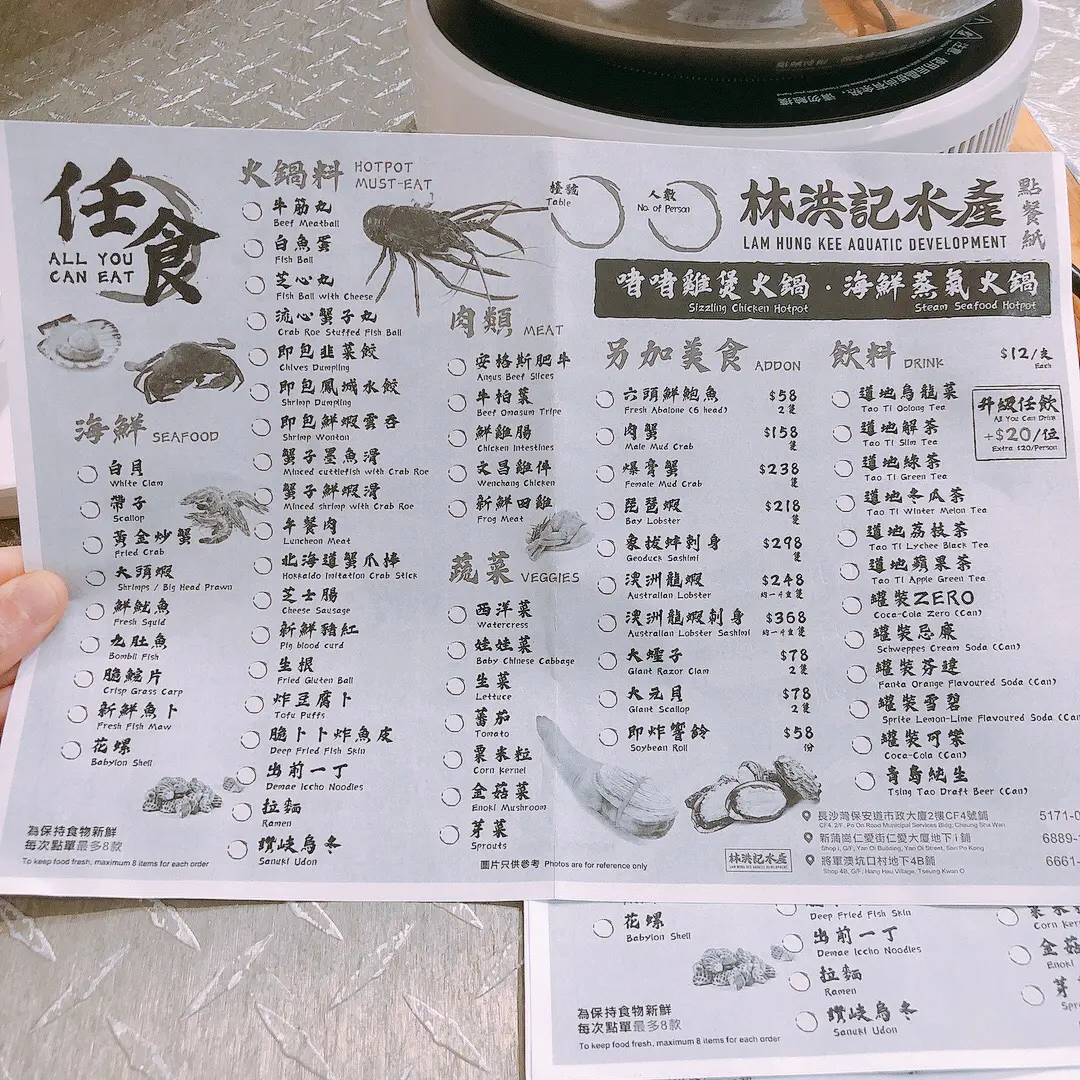 任食
ALL YOU
CAN EAT
海鮮 SEAFOOD
白貝
White Clam
帶子
Scallop
黃金炒蟹
Fried Crab
大頭蝦
Shrimps / Big Head Prawn
鮮魷魚
Fresh Squid
九肚魚
Bombil Fish
脆鯇片
Crisp Grass Carp
新鮮魚卜
Fresh Fish Maw
花螺
Babylon Shell
為保持食物新鮮
每次點單最多8款
To keep food fresh, maximum 8 items for each order
火鍋料 HOTPOT
MUST-EAT
牛筋丸
Beef Meatball
白魚蛋
Fish Ball
芝心丸
Fish Ball with Cheese
流心蟹子丸
Crab Roe Stuffed Fish Ball
即包韭菜餃
Chives Dumpling
即包鳳城水餃
Shrimp Dumpling
即包鮮蝦雲吞
Shrimp Wonton
蟹子墨魚滑
Minced cuttlefish with Crab Roe
蟹子鮮蝦滑
Minced shrimp with Crab Roe
午餐肉
Luncheon Meat
北海道蟹爪棒
Hokkaido Imitation Crab Stick
芝士腸
Cheese Sausage
新鮮豬紅
Pig blood curd
生根
Fried Gluten Ball
炸豆腐卜
Tofu Puffs
脆卜卜炸魚皮
Deep Fried Fish Skin
出前一丁
Demae Iccho Noodles
拉麵
Ramen
讚岐烏冬
Sanuki Udon
肉類 MEAT
安格斯肥牛
Angus Beef Slices
牛柏葉
Beef Omasum Tripe
鮮雞腸
Chicken Intestines
文昌雞件
Wenchang Chicken
新鮮田雞
Frog Meat
蔬菜 VEGGIES
西洋菜
Watercress
娃娃菜
Baby Chinese Cabbage
生菜
Lettuce
蕃茄
Tomato
粟米粒
Corn Kernel
金菇菜
Enoki Mushroom
芽菜
Sprouts
圖片只供參考 Photos are for reference only
檯號
Table
人數
No. of Person
林洪記水產
LAM HUNG KEE AQUATIC DEVELOPMENT
點餐紙
啫啫雞煲火鍋・海鮮蒸氣火鍋
Sizzling Chicken Hotpot Steam Seafood Hotpot
另加美食 ADDON
六頭鮮鮑魚 $58
Fresh Abalone (6 head) 2隻
肉蟹 $158
Male Mud Crab 隻
爆膏蟹 $238
Female Mud Crab 隻
琵琶蝦 $218
Bay Lobster 隻
象拔蚌刺身 $298
Geoduck Sashimi 隻
澳洲龍蝦 $248
Australian Lobster 約一斤隻
澳洲龍蝦刺身 $368
Australian Lobster Sashimi 約一斤隻
大蟶子 $78
Giant Razor Clam 2隻
大元貝 $78
Giant Scallop 2隻
即炸響鈴 $58
Soybean Roll 份
飲料 DRINK $12/支
Each
道地烏龍茶
Tao Ti Oolong Tea
道地解茶
Tao Ti Slim Tea
道地綠茶
Tao Ti Green Tea
道地冬瓜茶
Tao Ti Winter Melon Tea
道地荔枝茶
Tao Ti Lychee Black Tea
道地蘋果茶
Tao Ti Apple Green Tea
罐裝ZERO
Coca-Cola Zero (Can)
罐裝忌廉
Schweppes Cream Soda (Can)
罐裝芬達
Fanta Orange Flavoured Soda (Can)
罐裝雪碧
Sprite Lemon-Lime Flavoured Soda (Can
罐裝可樂
Coca-Cola (Can)
青島純生
Tsing Tao Draft Beer (Can)
升級任飲
All You Can Drink
+$20/位
Extra $20/Person
林洪記水產
LAM HUNG KEE AQUATIC DEVELOPMENT
長沙灣保安道市政大廈2樓CF4號舖 5171-0
CF4, 2/F, Po On Road Municipal Services Bldg, Cheung Sha Wan
新蒲崗仁愛街仁愛大廈地下i舖 6889-
Shop i, G/F, Yan Oi Building, Yan Oi Street, San Po Kong
將軍澳坑口村地下4B舖 6661-
Shop 4B, G/F, Hang Hau Village, Tseung Kwan O
花螺
Babylon Shell
為保持食物新鮮
每次點單最多8款
To keep food fresh, maximum 8 items for each order
Deep Fried Fish Skin
出前一丁
Demae Iccho Noodles
拉麵
Ramen
讚岐烏冬
Sanuki Udon
Corn Ker
金菇
Enoki
芽
Spr